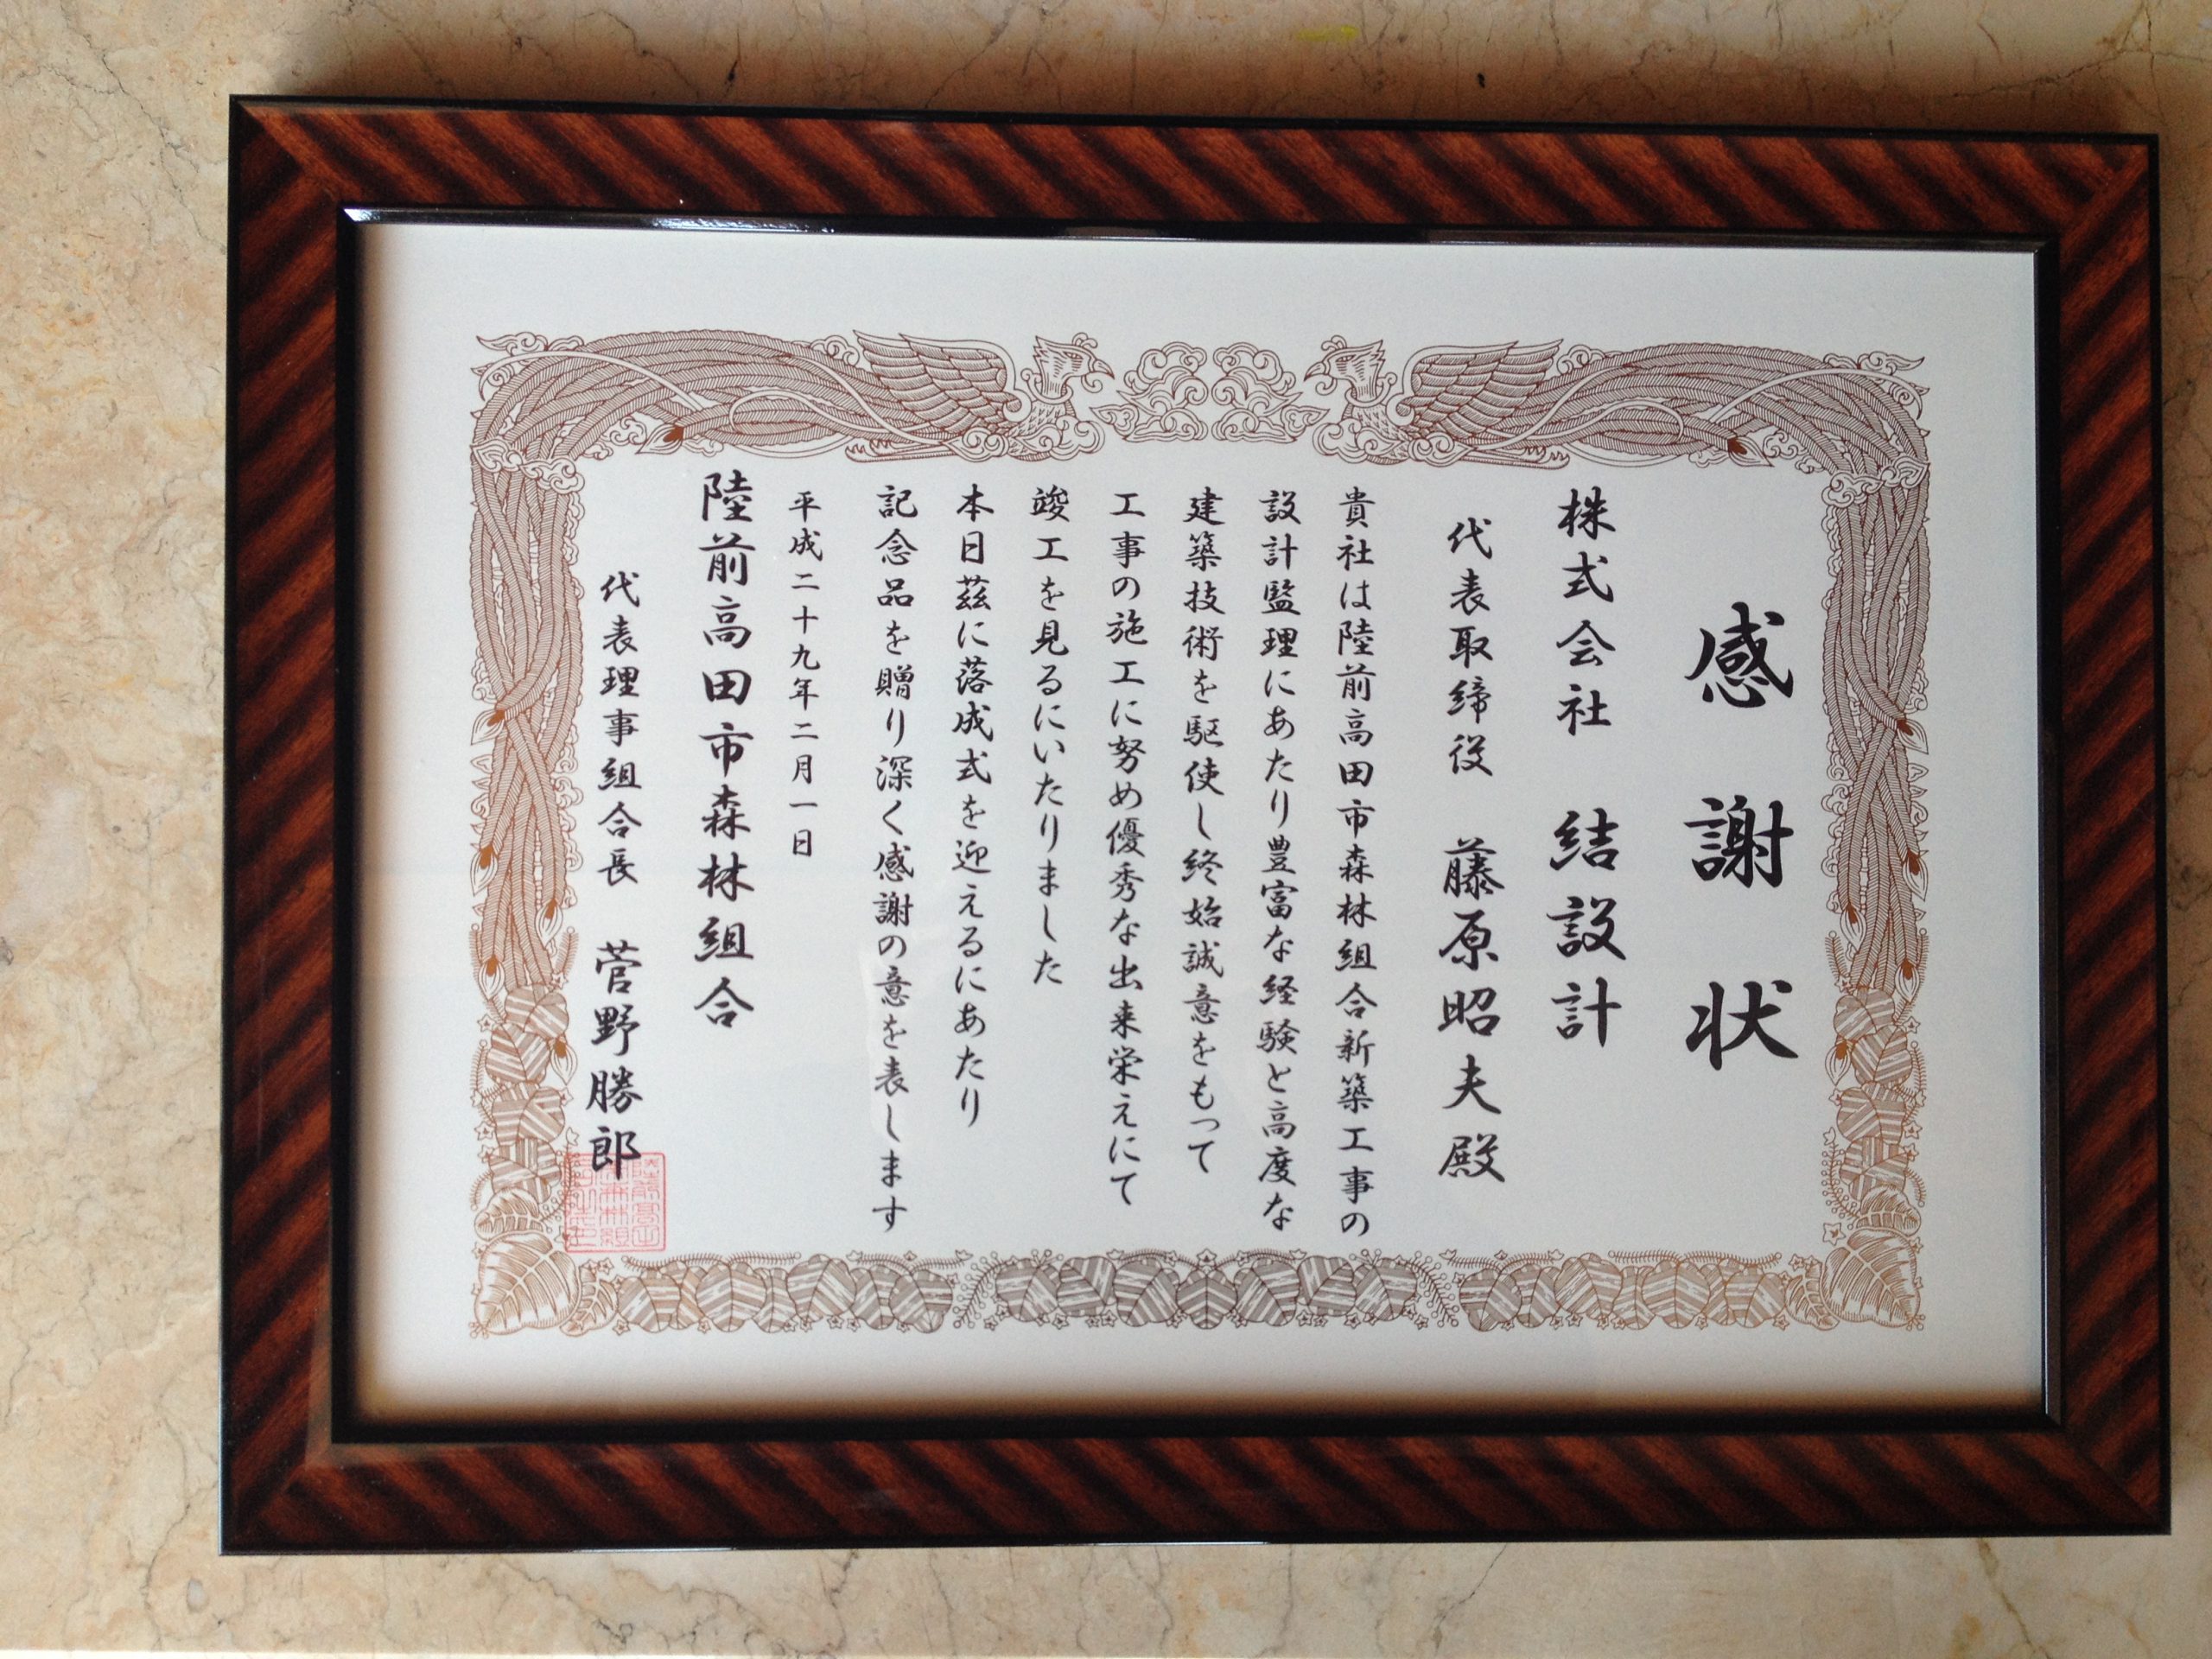 感謝状
株式会社 結設計
代表取締役 藤原昭夫殿
貴社は陸前高田市森林組合新築工事の
設計監理にあたり豊富な経験と高度な
建築技術を駆使し終始誠意をもって
工事の施工に努め優秀な出来栄えにて
竣工を見るにいたりました
本日茲に落成式を迎えるにあたり
記念品を贈り深く感謝の意を表します
平成二十九年二月一日
陸前高田市森林組合
代表理事組合長 菅野勝郎